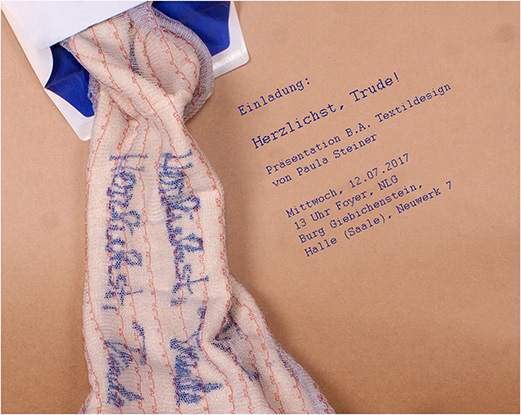 Einladung:
Herzlichst, Trude!
Präsentation B.A. Textildesign
von Paula Steiner
Mittwoch, 12.07.2017
13 Uhr Foyer, NLG
Burg Giebichenstein,
Halle (Saale), Neuwerk 7
Herzlichst, Trude
Herzlichst, Trude